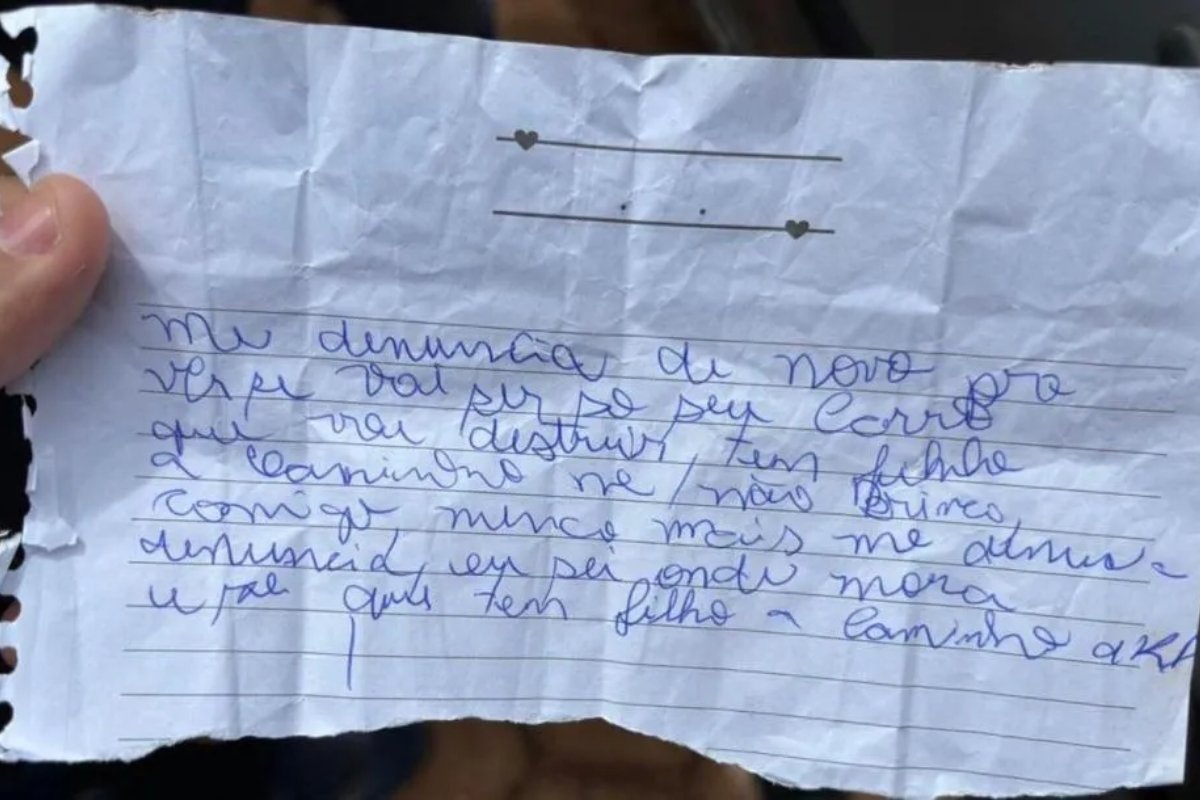 Me denuncia de novo pra
ver se vai ser só seu carro
que vai distruir, tem filho
a caminho ne, não brinca
comigo, nunca mais me
denuncia, eu sei onde mora
e sei que tem filho a caminho